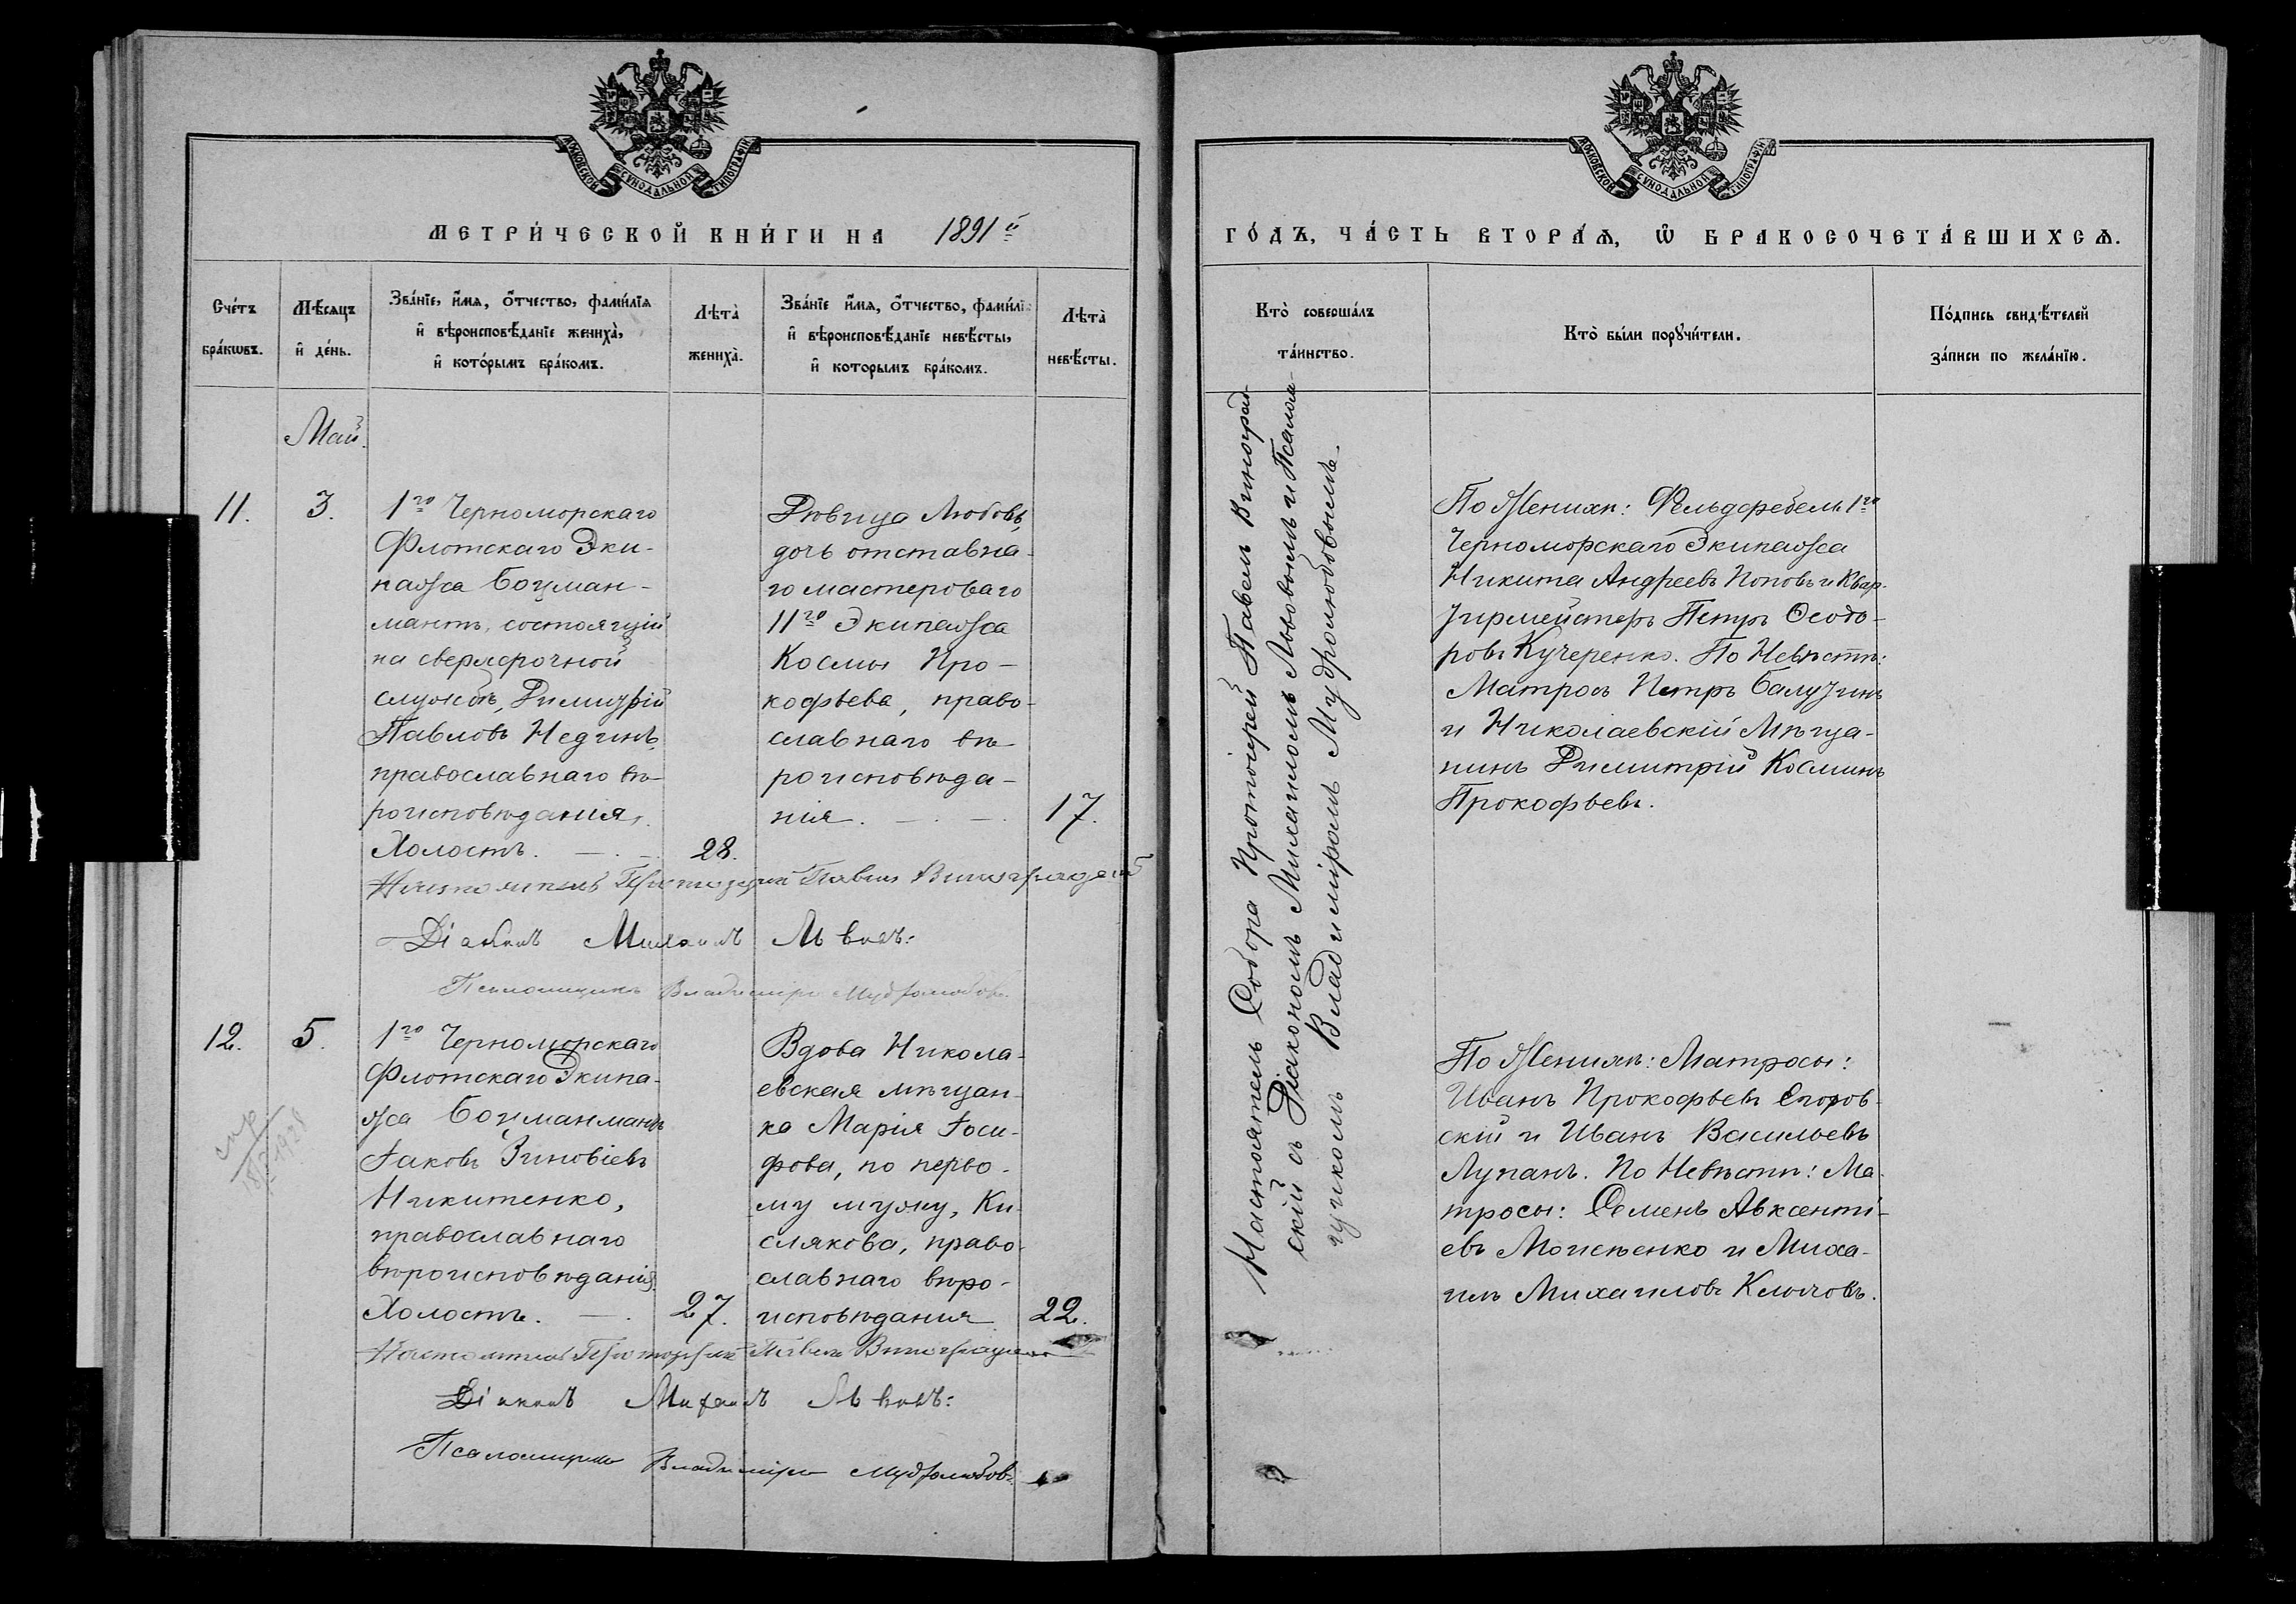 МОСКОВСКОЙ СѴНОДАЛЬНОЙ ТИПОГРАФІИ
МЕТРИ́ЧЕСКОЙ КНИ́ГИ НА 1891й
Сче́тъ
бра́кѡвъ.
Мѣ́сяцъ
и҆ де́нь.
Зва́нїе, и҆́мѧ, ѻ҆́тчество, фами́лїѧ
и҆ вѣроисповѣ́данїе жениха̀,
и҆ кото́рымъ бра́комъ.
Лѣта̀
жениха̀.
Зва́нїе и҆́мѧ, ѻ҆́тчество, фами́лїѧ
и҆ вѣроисповѣ́данїе невѣ́сты,
и҆ которымъ бра́комъ.
Лѣта̀
невѣ́сты.
Май.
11.
3.
1го Черноморскаго
Флотскаго Эки-
пажа Боцман-
матъ, состоящій
на сверхсрочной
службѣ, Димитрій
Павловъ Нединъ,
православнаго вѣ-
роисповѣданія,
Холостъ.
28.
Дѣвица Любовь,
дочь отставна-
го мастероваго
11го Экипажа
Космы Про-
кофьева, право-
славнаго вѣ-
роисповѣда-
нія.
17.
Настоятель Протоіерей Павелъ Виноградскій
Діаконъ Михаилъ Львовъ:
Псаломщикъ Владиміръ Мудролюбовъ.
12.
5.
1го Черноморскаго
Флотскаго Экипа-
жа Боцманматъ
Іаковъ Зиновіевъ
Никитенко,
православнаго
вѣроисповѣданія,
Холостъ.
27.
Вдова Никола-
евская мѣщан-
ка Марія Іоси-
фова, по перво-
му мужу, Ки-
слякова, право-
славнаго вѣро-
исповѣданія
22.
Настоятель Протоіерей Павелъ Виноградскій
Діаконъ Михаилъ Львовъ:
Псаломщикъ Владиміръ Мудролюбовъ.
МОСКОВСКОЙ СѴНОДАЛЬНОЙ ТИПОГРАФІИ
ГО́ДЪ, ЧА́СТЬ ВТОРА́Ѧ, Ѡ҆ БРАКОСОЧЕТА́ВШИХСѦ.
Кто̀ соверша́лъ
та́инство.
Кто̀ бы́ли порꙋчи́тели.
По́дпись свидѣ́телей
за́писи по жела́нїю.
Настоятель Собора Протоіерей Павелъ Виноград-
скій съ Діакономъ Михаиломъ Львовымъ и Псалом-
щикомъ Владиміромъ Мудролюбовымъ.
По Женихѣ: Фельдфебель 1го
Черноморскаго Экипажа
Никита Андреевъ Поповъ и Квар-
тирмейстеръ Петръ Ѳеодо-
ровъ Кучеренко. По Невѣстѣ:
Матросъ Петръ Балутинъ
и Николаевскій Мѣща-
нинъ Димитрій Косминъ
Прокофьевъ.
По Женихѣ: Матросы:
Иванъ Прокофьевъ Егоров-
скій и Иванъ Васильевъ
Лупанъ. По Невѣстѣ: Ма-
тросы: Семенъ Авксенті-
евъ Моисѣенко и Миха-
илъ Михаиловъ Клочовъ.